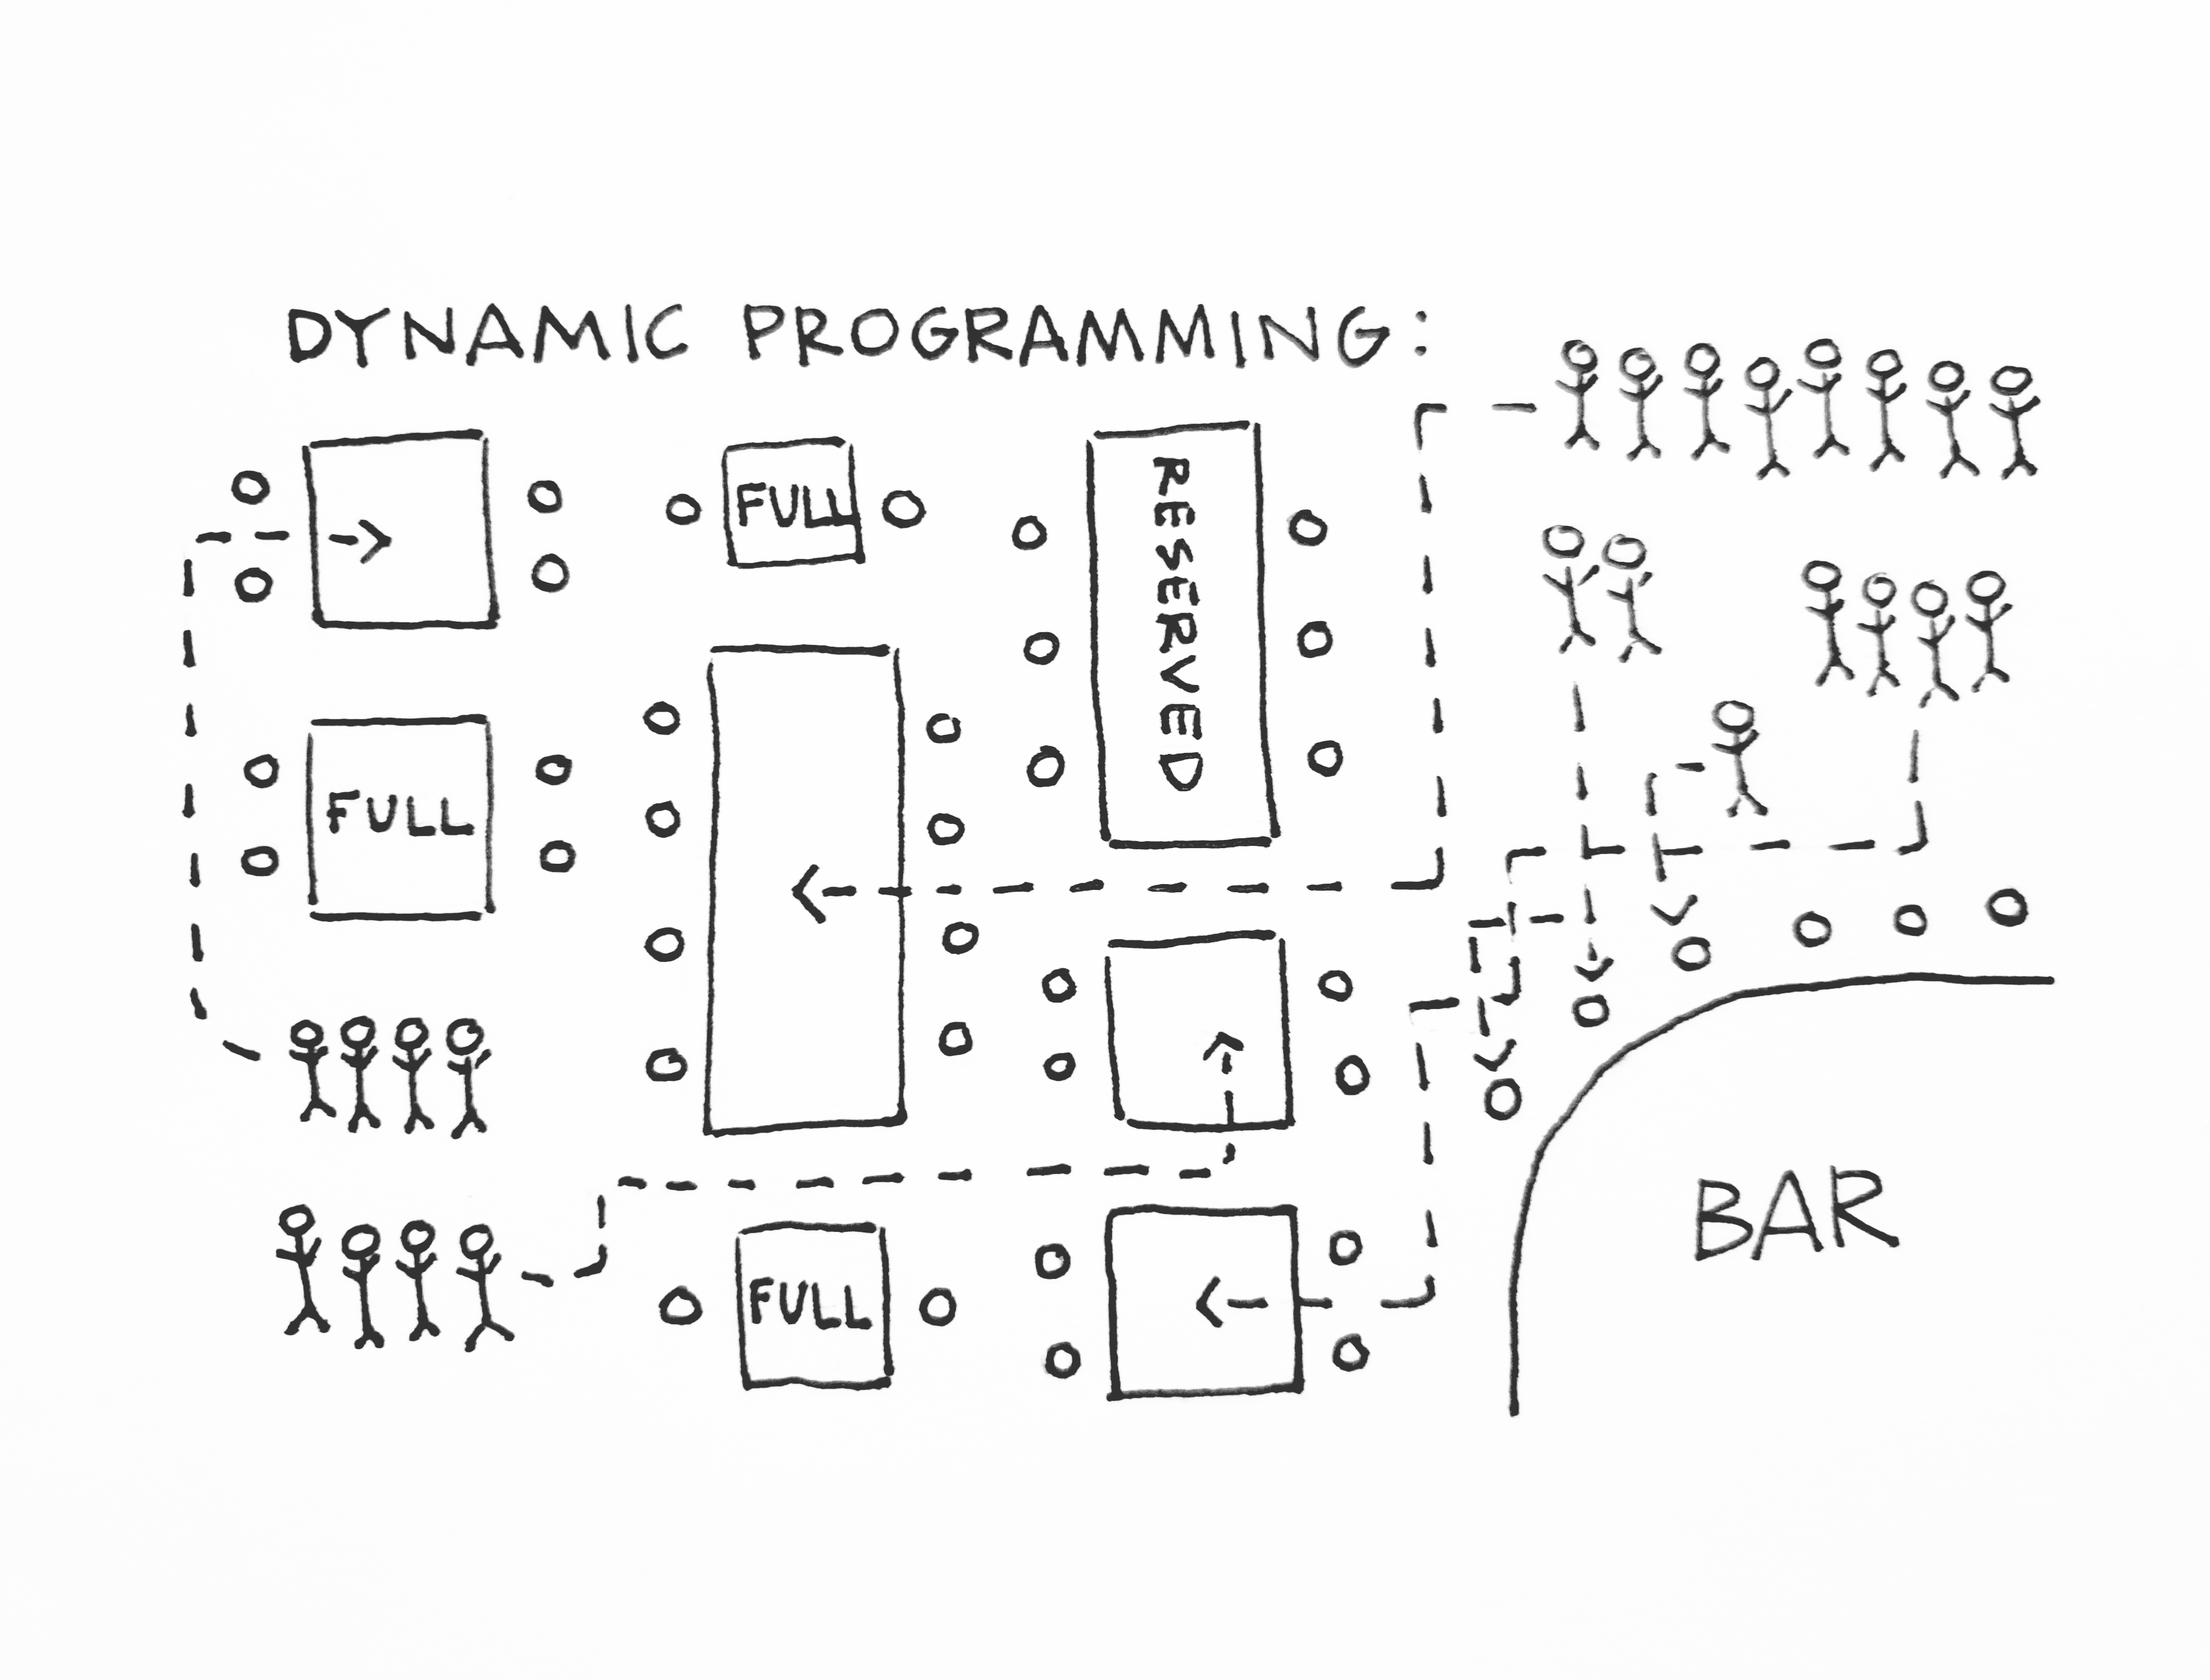 DYNAMIC PROGRAMMING:
FULL
RESERVED
FULL
FULL
BAR